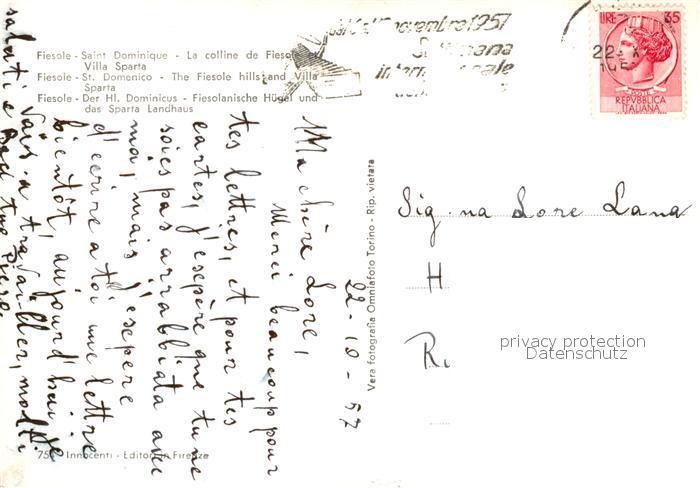 Fiesole - Saint Dominique - La colline de Fiesole et
Villa Sparta
Fiesole - St. Domenico - The Fiesole hills and Villa
Sparta
Fiesole - Der Hl. Dominicus - Fiesolanische Hügel und
das Sparta Landhaus
novembre 1957
LIRE 35
22. X
POSTE
REPVBBLICA
ITALIANA
22-10-57
Ma chère Lore,
Merci beaucoup pour
tes lettres, et pour tes
cartes, j'espère que tu ne
soies pas arrabbiata avec
moi, mais j'espere
d'ecrire a toi une lettre
bientôt, aujourd'hui je
vais a travailler, molti
saluti e baci tuo Piero
Vera fotografia Omniafoto Torino - Rip. vietata
Sig.na Lore Lana
H
R.
privacy protection
Datenschutz
Innocenti - Editori in Firenze